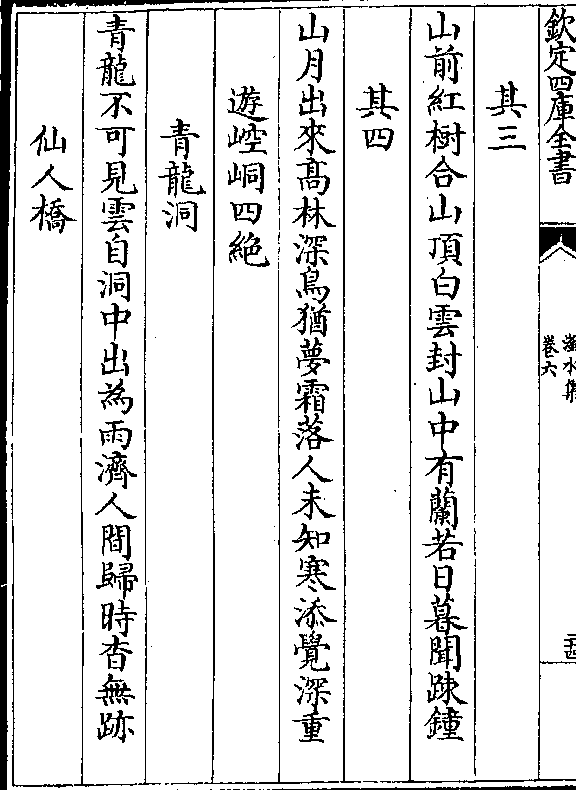 欽定四庫全書
滏水集
卷六
其三
山前紅樹合山頂白雲封山中有蘭若日暮聞踈鐘
其四
山月出來髙林深鳥猶夢霜落人未知寒添覺深重
遊崆峒四絶
青龍洞
青龍不可見雲自洞中出為雨濟人間歸時杳無跡
仙人橋